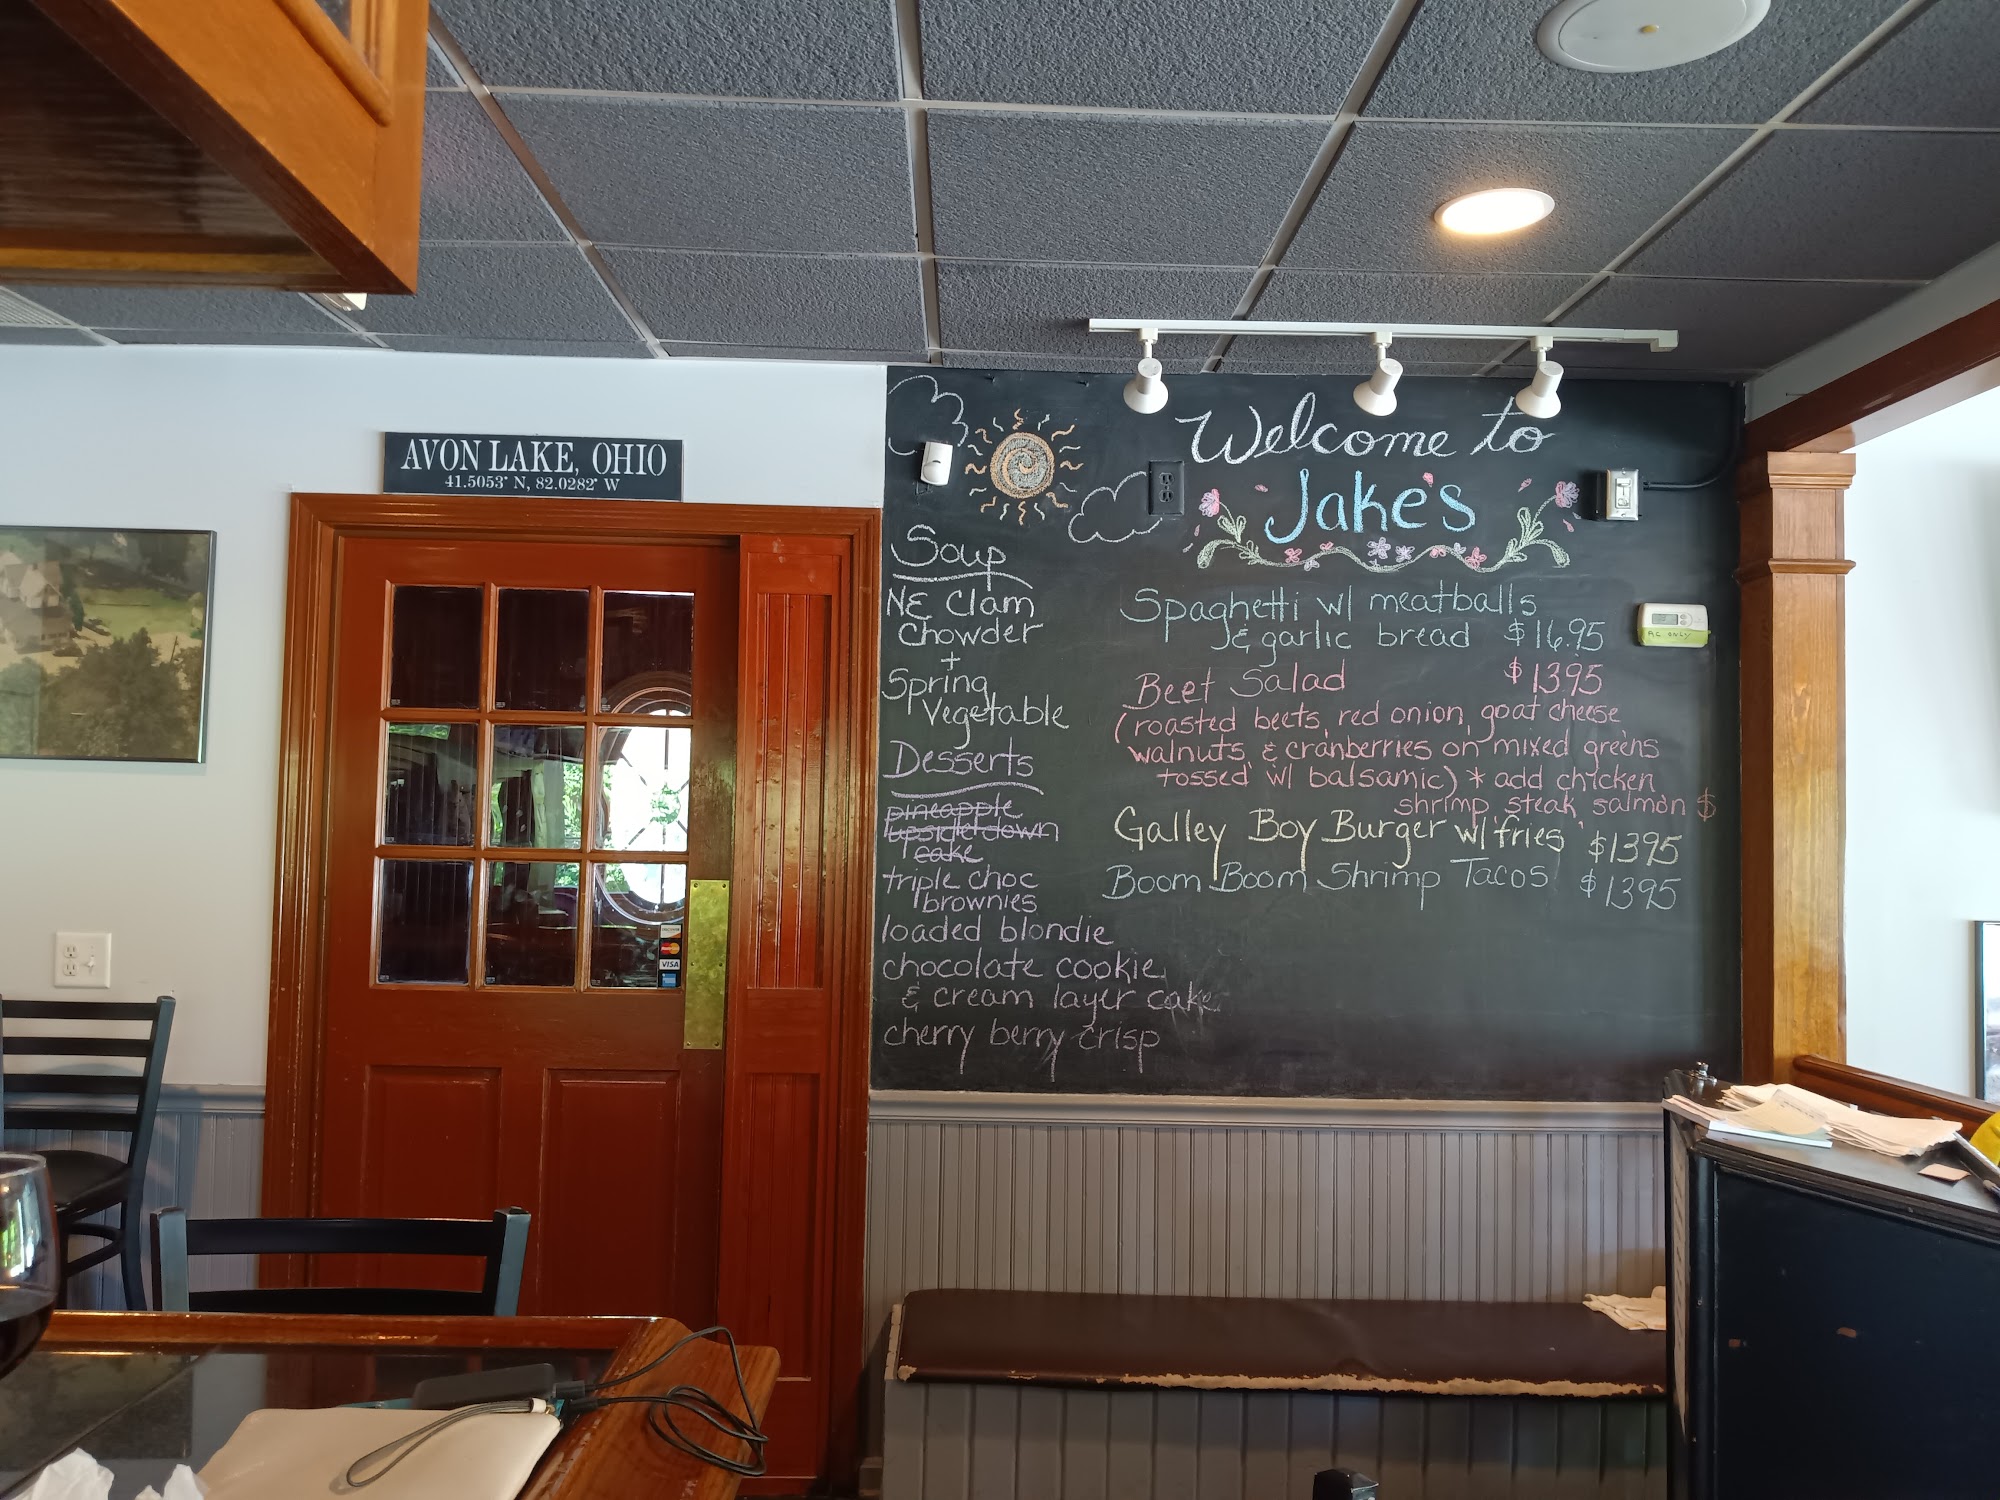 AVON LAKE, OHIO
41.5053° N, 82.0282° W
Welcome to
Jake's
Soup
NE Clam
Chowder
+
Spring
Vegetable
Desserts
pineapple
upside down
cake
triple choc
brownies
loaded blondie
chocolate cookie
& cream layer cake
cherry berry crisp
Spaghetti w/ meatballs
& garlic bread $16.95
Beet Salad $1395
(roasted beets, red onion, goat cheese
walnuts & cranberries on mixed greens
tossed w/ balsamic) * add chicken
shrimp, steak, salmon $
Galley Boy Burger w/ fries $1395
Boom Boom Shrimp Tacos $1395
AC ONLY
MasterCard
VISA